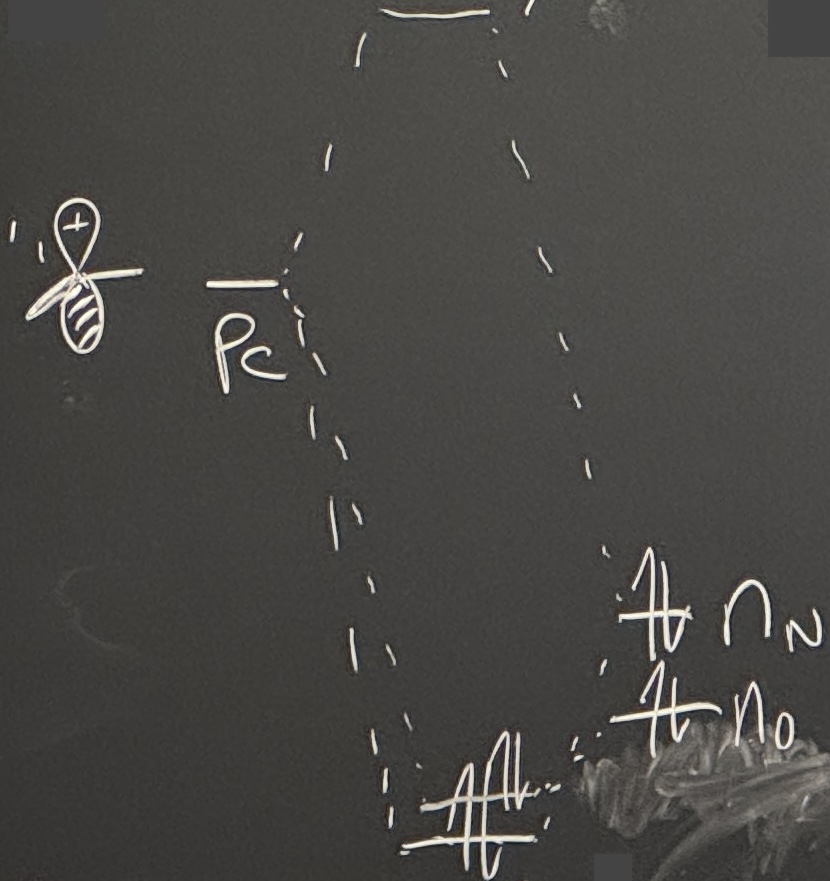 +
Pc
nN
nO